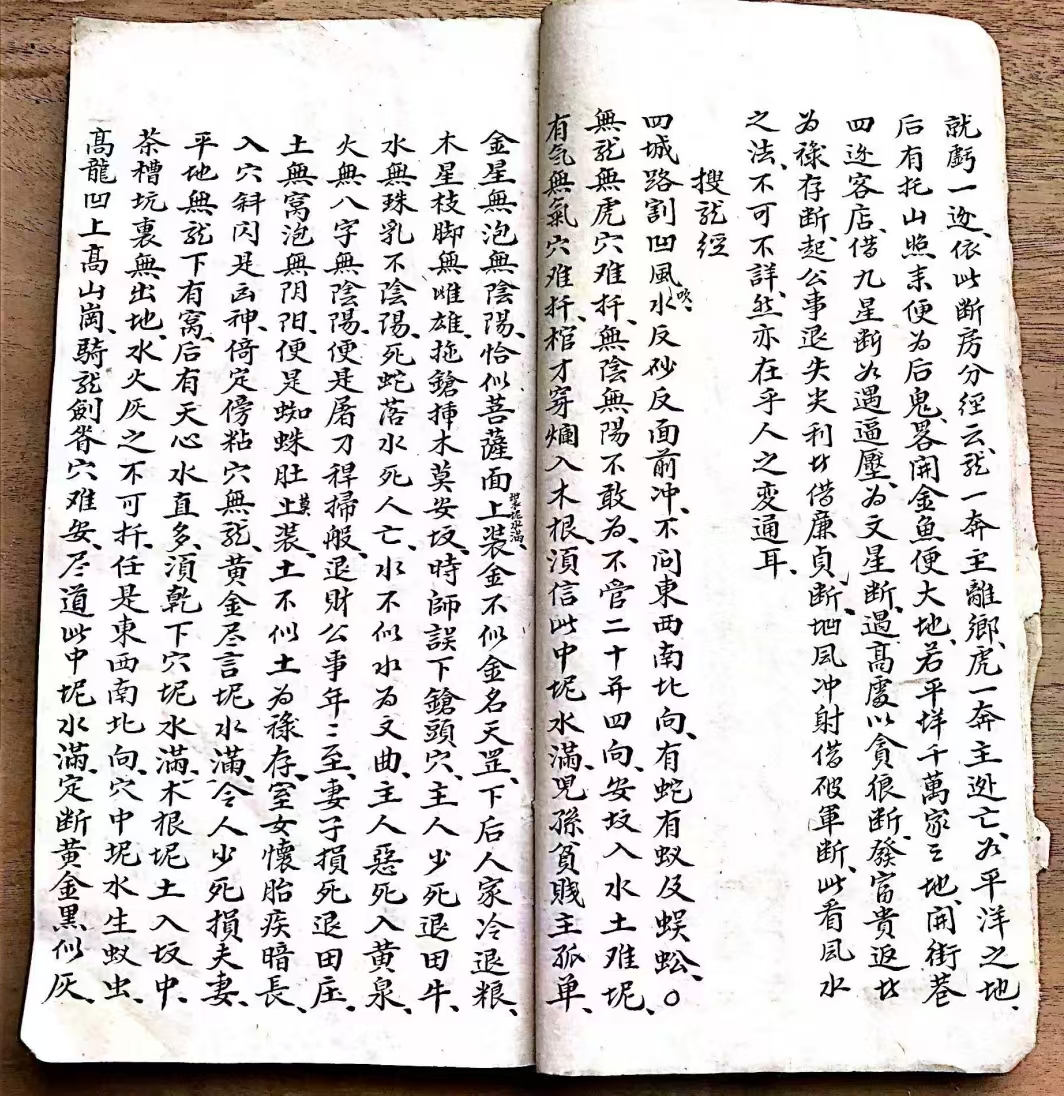 就虧一边、依此断房分經云、龙一奔主離鄉、虎一奔主逃亡、如平洋之地、
后有托山照素便為后鬼、畧開金魚便大地、若平垟千萬家之地、開街巷
四边客店、借九星断、如遇逼壓、為文星断、遇高處以貪狼断、發富貴返此
為祿存断、起公事退失尖利此借廉貞断、地風冲射借破軍断、此看風水
之法、不可不詳、然亦在乎人之变通耳、
搜龙經
四城路割凹風吹、水反砂反面前冲、不问東西南北向、有蛇有蚁及蜈蚣、○
無龙無虎穴难扦、無陰無陽不敢為、不管二十并四向、安坟入水土难坭、
有气無氣穴难扦、棺才穿爛入木根、須信此中坭水滿、児孫貧賤主孤单、
金星無泡無陰陽、恰似菩薩面上装、金不似金名天罡、下后人家冷退粮、
木星枝脚無雌雄、拖鎗揷木莫安坟、時師誤下鎗頭穴、主人少死退田牛、
水無珠乳不陰陽、死蛇落水死人亡、水不似水為文曲、主人惡死入黄泉、
火無八字無陰陽、便是屠刀稈掃般、退財公事年〻至、妻子損死退田庄、
土無窩泡無阴阳、便是蜘蛛肚土莫装、土不似土為祿存、室女懷胎疾暗長、
入穴斜闪是凶神、倚定傍粘穴無龙、黄金尽言坭水滿、令人少死損夫妻、
平地無龙下有窩、后有天心水直多、須乾下穴坭水滿、木根坭土入坟中、
茶槽坑裏無出地、水火灰之不可扦、任是東西南北向、穴中坭水生蚁虫、
高龍凹上高山崗、騎龙劍脊穴难安、尽道此中坭水滿、定断黄金黒似灰、